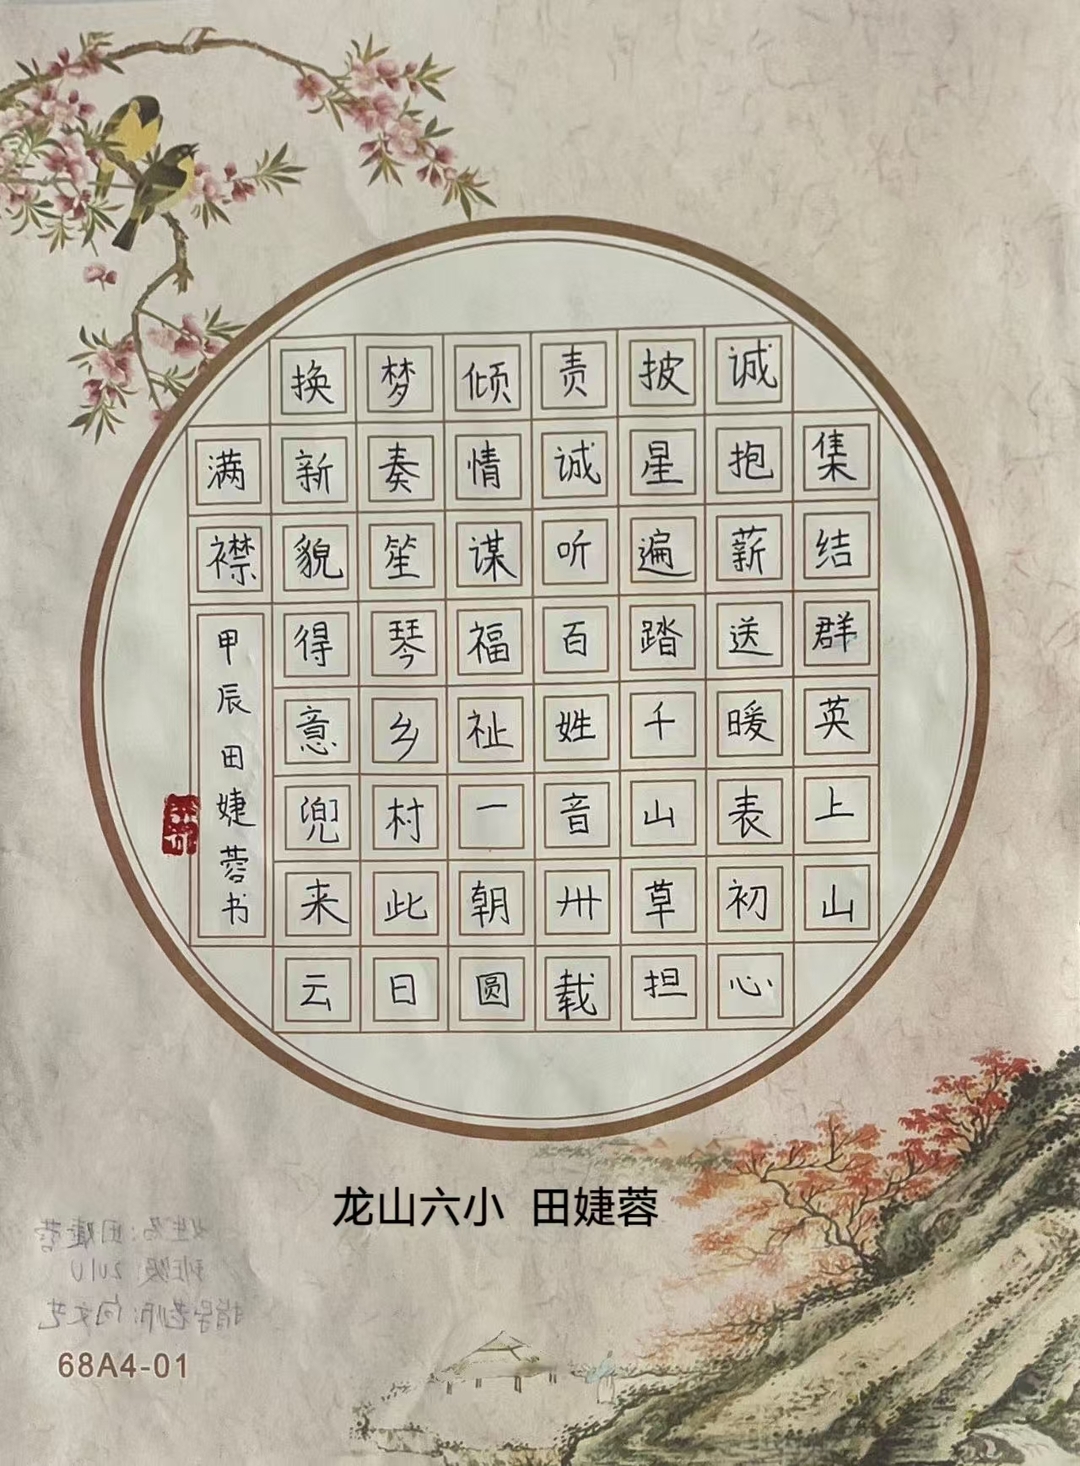 集结群英上山
诚抱薪送暖表初心
披星遍踏千山草担
责诚听百姓音卅载
倾情谋福祉一朝圆
梦奏笙琴乡村此日
换新貌得意兜来云
满襟
甲辰田婕蓉书
龙山六小 田婕蓉
姓名:田婕蓉
班级:2010
指导老师:向文艺
68A4-01